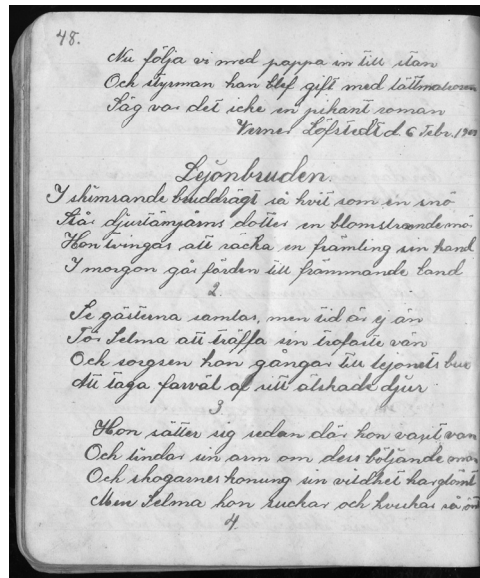 48.
Nu följa vi med pappa in till stan
Och styrman han blef gift med lättmatrosen
Säg var det icke en pikant roman
Verner Löfstedt d. 6 Febr. 19
Lejonbruden.
I skimrande bruddrägt så hvit som en snö
Står djurtämjarns dotter en blomstrande mö
Hon tvingas att räcka en främling sin hand
I morgon går färden till främmande land
2.
Se gästerna samlas, men tid är ej än
För Selma att träffa sin trofaste vän
Och sorgsen hon gångar till lejonets bur
Att taga farväl af sitt älskade djur
3.
Hon sätter sig sedan där hon varit van
Och lindar sin arm om dess böljande man
Och skogarnes konung sin vildhet har glömt
Men Selma hon suckar och hviskar så ömt
4.